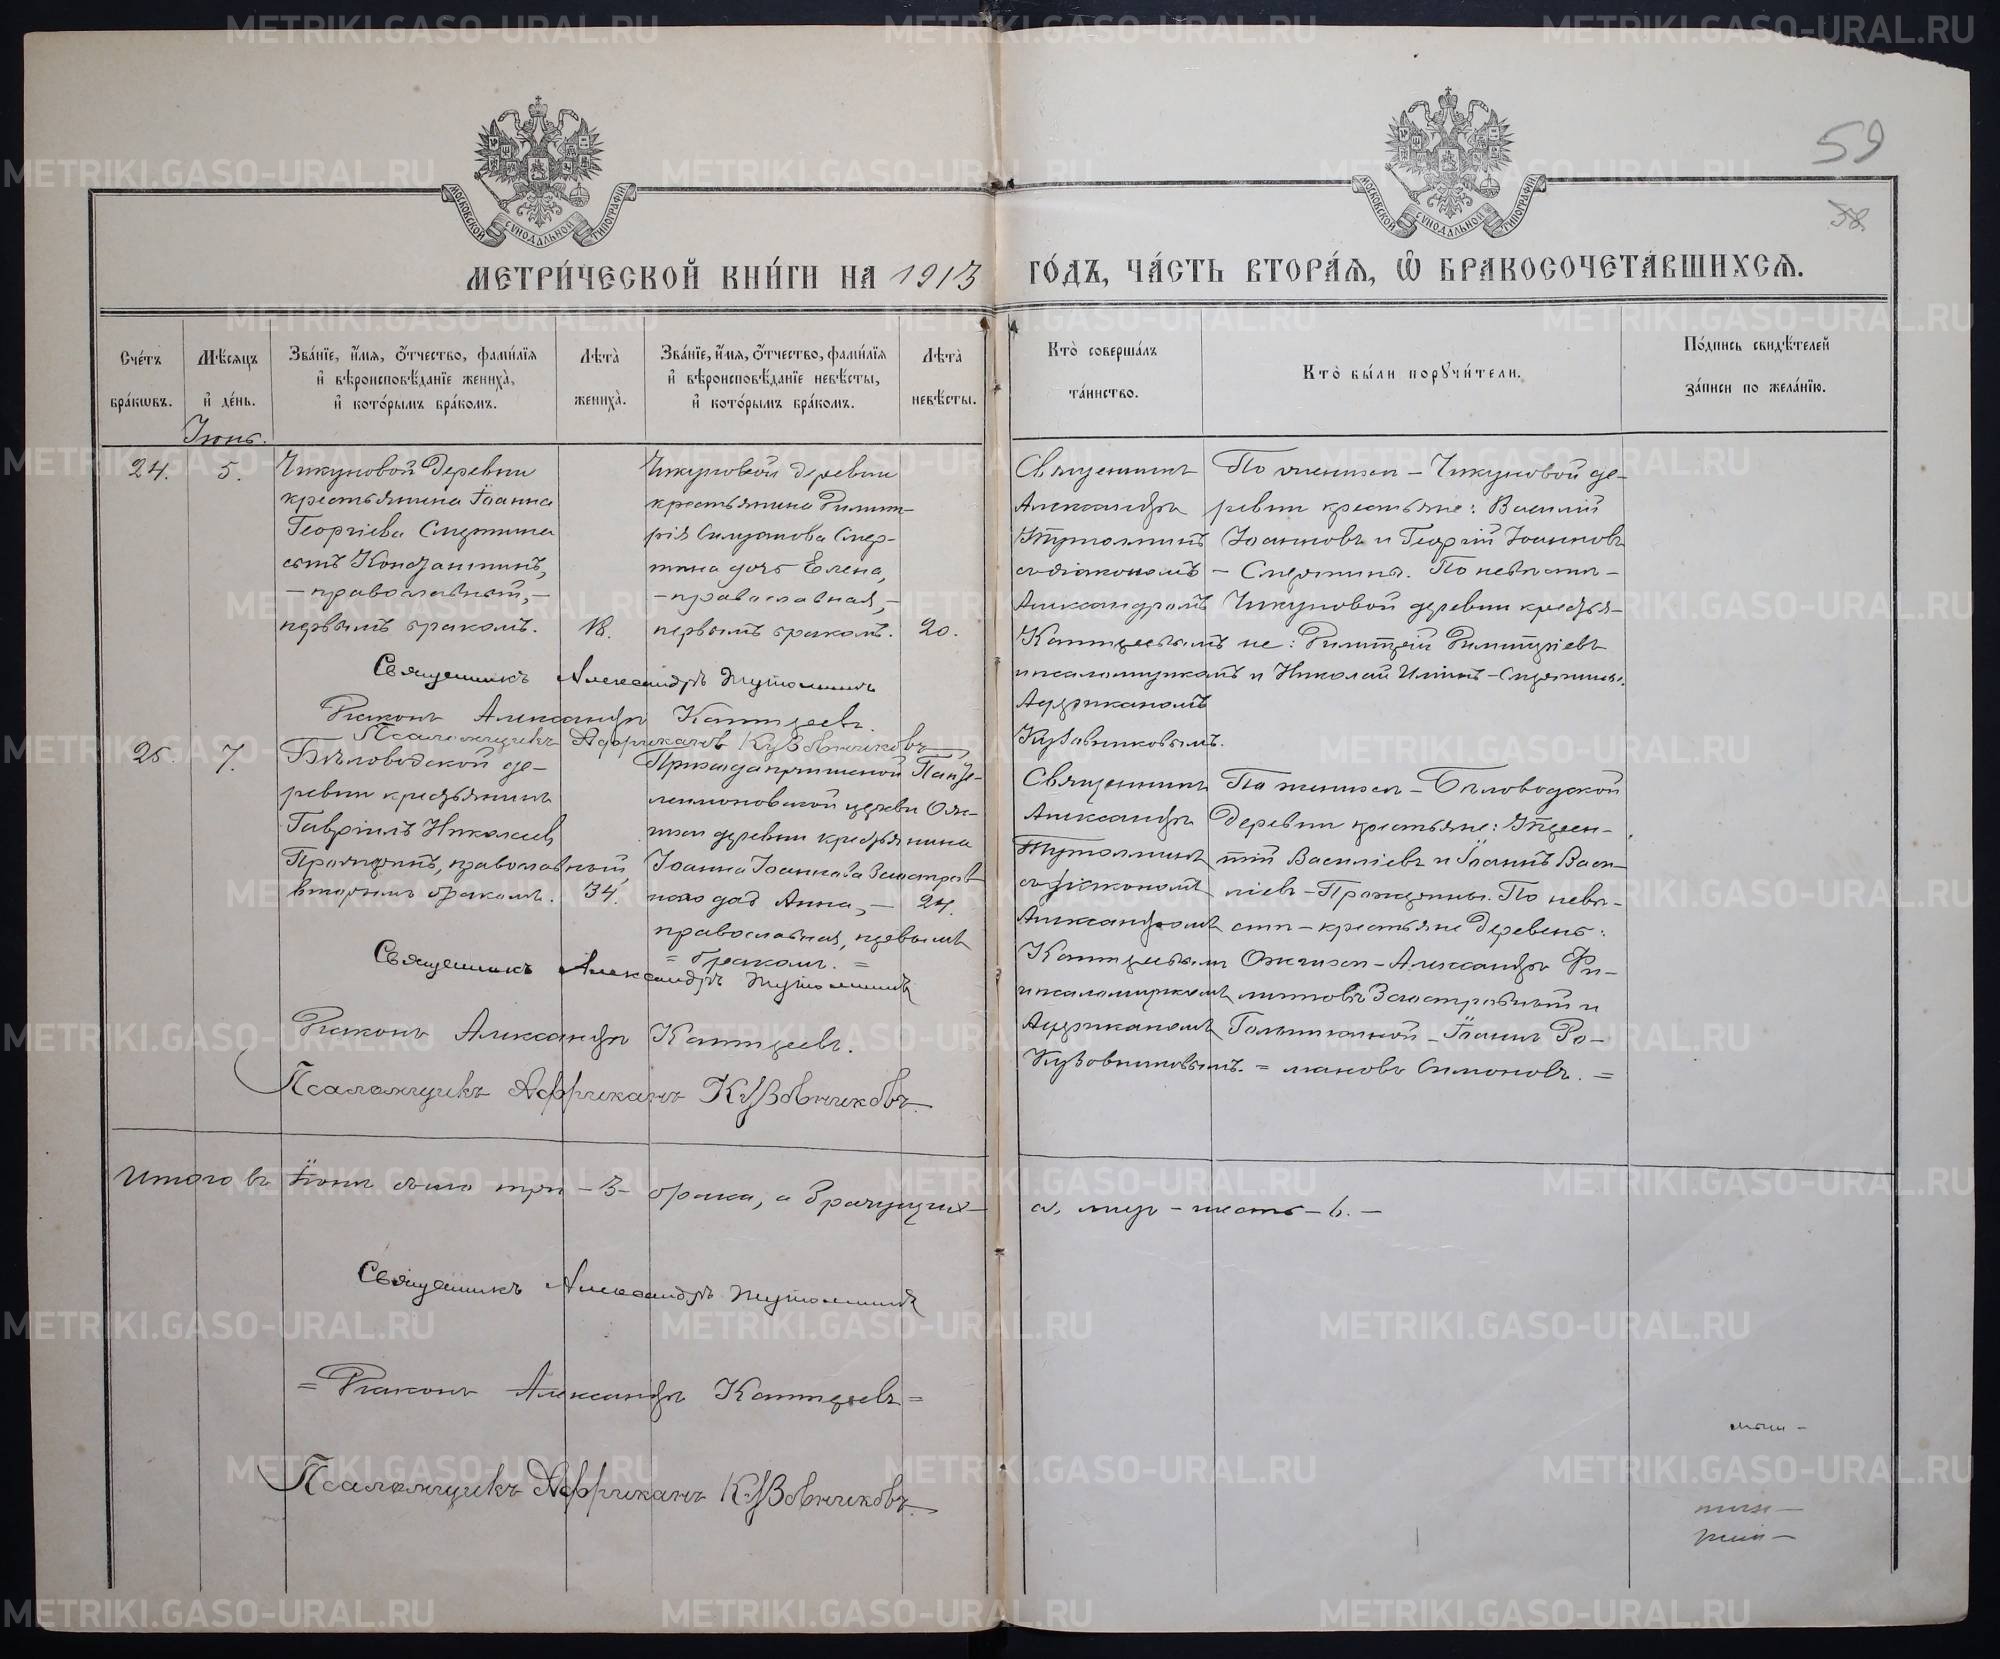 59
58
МОСКОВСКОЙ СУНОДАЛЬНОЙ ТИПОГРАФІИ
МОСКОВСКОЙ СУНОДАЛЬНОЙ ТИПОГРАФІИ
МЕТРИ́ЧЕСКОЙ КНИ́ГИ НА 1913 ГО́ДЪ, ЧА́СТЬ ВТОРА́Ѧ, Ѽ БРАКОСОЧЕТА́ВШИХСѦ.
Сче́тъ бра́кѡвъ.
Мѣ́сяцъ и҆ де́нь.
Зва́нїе, и҆́мѧ, ѻ҆́тчество, фами́лїѧ
и҆ вѣроисповѣ́данїе жениха̀,
и҆ кото́рымъ бра́комъ.
Лѣ́та̀ жениха̀.
Зва́нїе, и҆́мѧ, ѻ҆́тчество, фами́лїѧ
и҆ вѣроисповѣ́данїе невѣ́сты,
и҆ кото́рымъ бра́комъ.
Лѣ́та̀ невѣ́сты.
Кто̀ соверша́лъ
та́инство.
Кто̀ бы́ли порꙋчи́тели.
По́дпись свидѣ́телей
за́писи по жела́нїю.
Іюнь.
24.
5.
Чикуновой деревни
крестьянина Іоанна
Георгіева Смертина
сынъ Константинъ,
- православный, -
первымъ бракомъ.
18.
Чикуновой деревни
крестьянина Димит-
рія Силуанова Смер-
тина дочь Елена,
- православная, -
первымъ бракомъ.
20.
Священникъ
Александръ
Тутолминъ
съ діакономъ
Александромъ
Каптеревымъ
и псаломщикомъ
Африканомъ
Кузовниковымъ.
По женихѣ - Чикуновой де-
ревни крестьяне: Василій
Іоанновъ и Георгій Іоанновъ
- Смертины. По невѣстѣ -
Чикуновой деревни крестья-
не: Димитрій Димитріевъ
и Николай - Смертины.
Священникъ Александръ Тутолминъ
Діаконъ Александръ
Псаломщикъ Африканъ Кузовниковъ
25.
7.
Бѣловодской де-
ревни крестьянинъ
Гавріилъ Николаевъ
православный,
вторымъ бракомъ.
34.
церкви
деревни крестьянина
Іоанна Іоаннова Заостров-
наго дочь Анна, -
православная, первымъ
= бракомъ. =
24.
Священникъ
Александръ
Тутолминъ
съ діакономъ
Александромъ
и псаломщикомъ
Африканомъ
Кузовниковымъ. =
По женихѣ - Бѣловодской
деревни крестьяне:
Васильевъ и Іоаннъ Васи-
льевъ - По невѣ-
стѣ - крестьяне деревень:
- Александръ Фи-
липповъ Заостровный и
- Іоаннъ Ро-
мановъ Симоновъ. =
Священникъ Александръ Тутолминъ
Діаконъ Александръ
Псаломщикъ Африканъ Кузовниковъ.
Итого въ Іюнѣ было три - 3 - брака, а брачущих- ся лицъ - шесть - 6. -
Священникъ Александръ Тутолминъ
= Діаконъ Александръ =
Псаломщикъ Африканъ Кузовниковъ.
METRIKI.GASO-URAL.RU